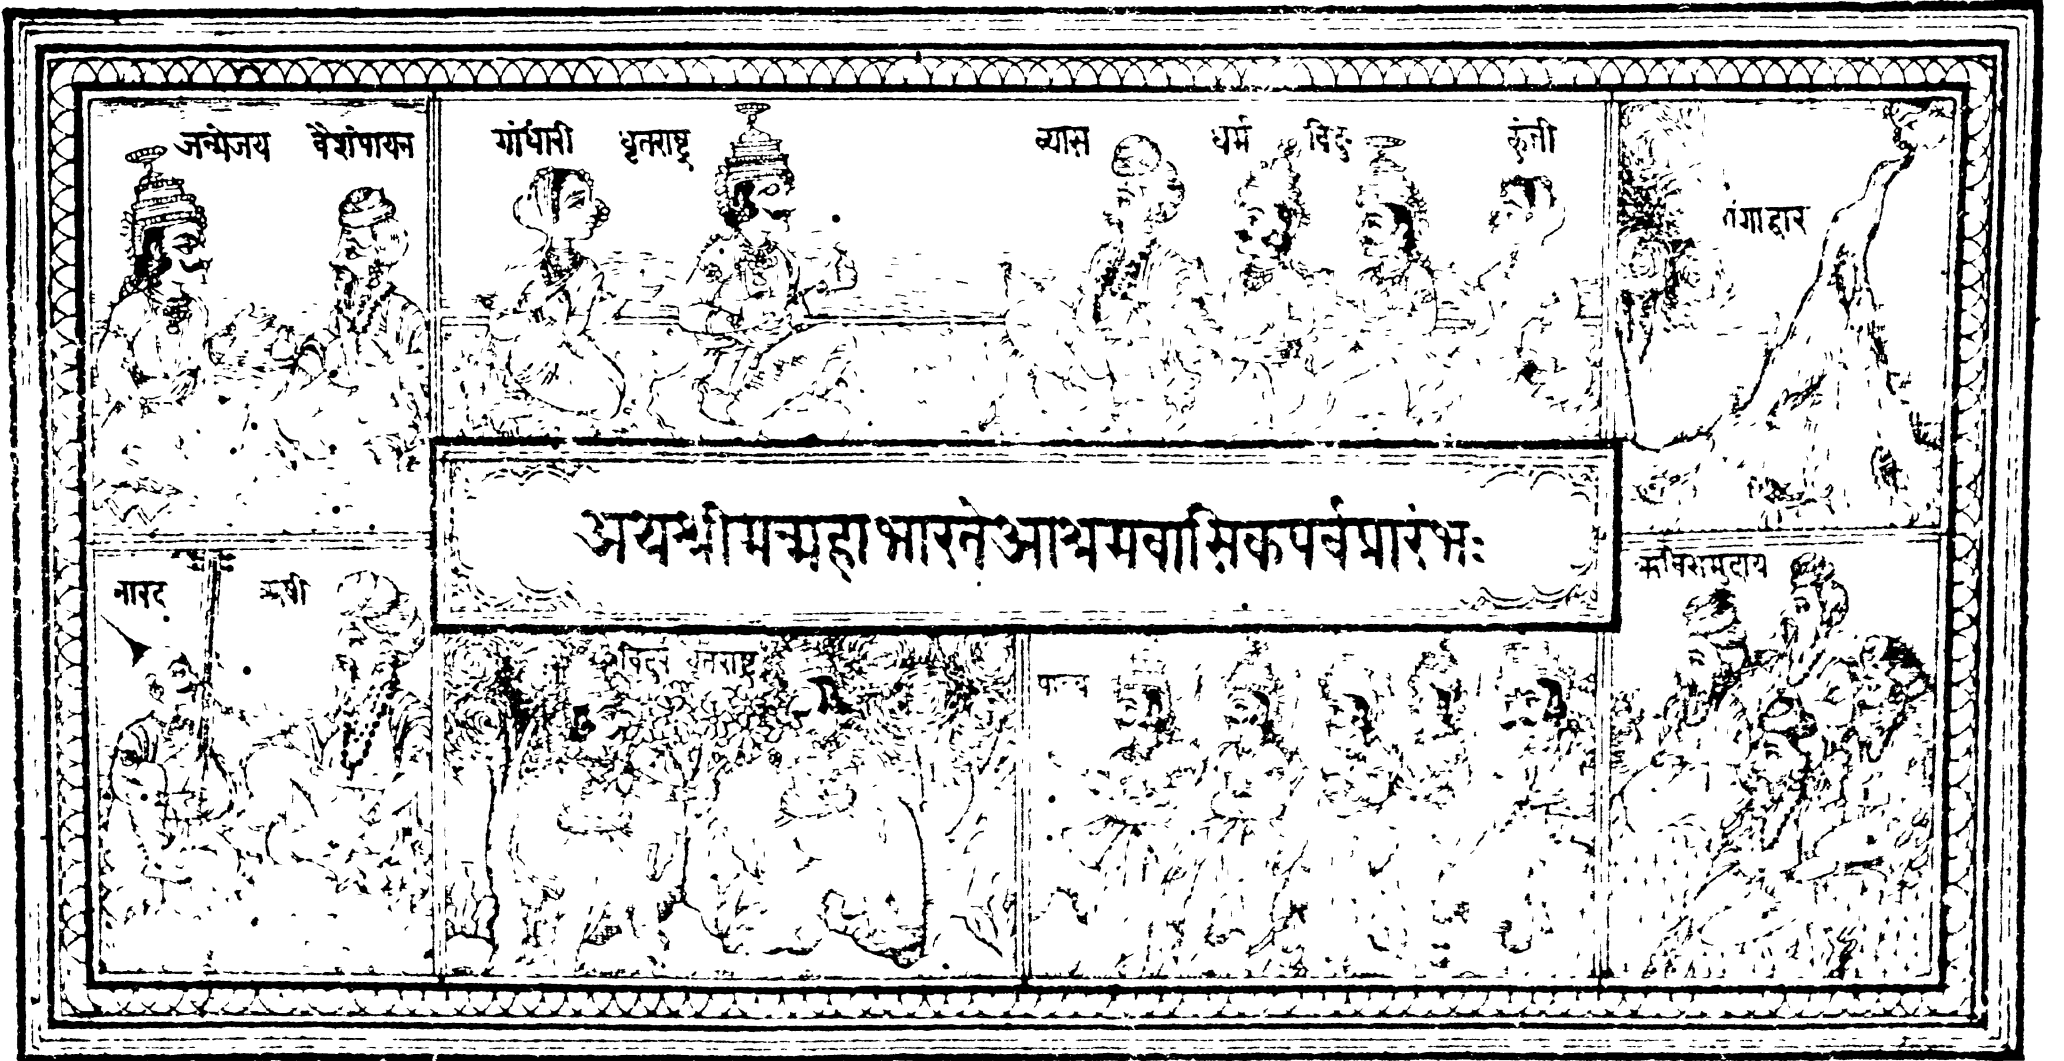 जन्मेजय वैशंपायन
गांधारी धृतराष्ट्र
व्यास धर्म विदु कुंती
गंगाद्वार
अथश्रीमन्महाभारतेआश्रमवासिकपर्वप्रारंभः
नारद ऋषी
विदुर धृतराष्ट्र